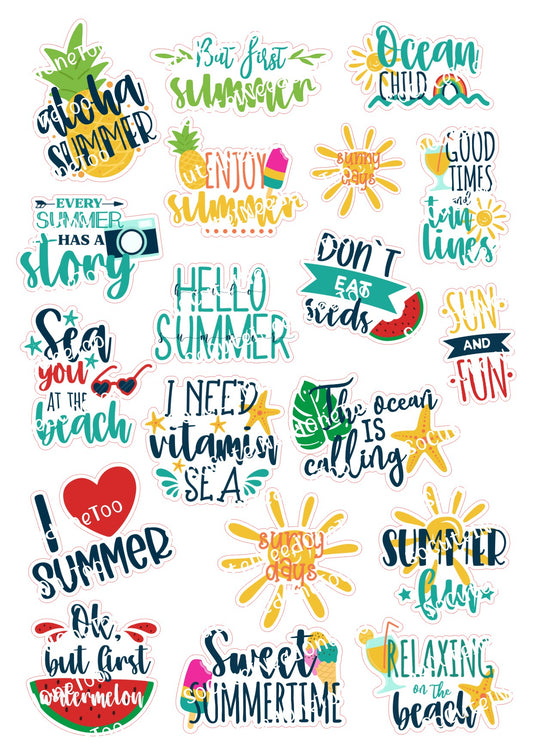 aloha
SUMMER
But first
summer
Ocean
CHILD
ENJOY
summer
sunny
days
GOOD
TIMES
and
tan
lines
EVERY
SUMMER
HAS A
story
HELLO
SUMMER
summer
DON`T
EAT
seeds
SUN
AND
FUN
Sea
you
AT THE
beach
I NEED
vitamin
SEA
The ocean
IS
calling
I
SUMMER
sunny
days
SUMMER
fun
Oh,
but first
watermelon
Sweet
SUMMERTIME
RELAXING
on the
beach